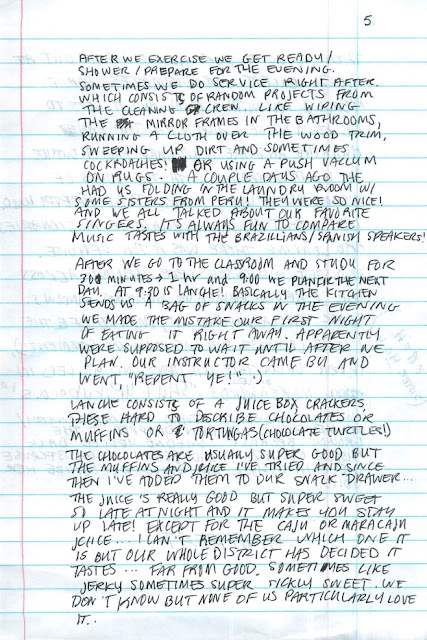 5
AFTER WE EXERCISE WE GET READY/
SHOWER/PREPARE FOR THE EVENING.
SOMETIMES WE DO SERVICE RIGHT AFTER.
WHICH CONSISTS OF RANDOM PROJECTS FROM
THE CLEANING CREW... LIKE WIPING
THE MIRROR FRAMES IN THE BATHROOMS,
RUNNING A CLOTH OVER THE WOOD TRIM,
SWEEPING UP DIRT AND SOMETIMES
COCKROACHES! OR USING A PUSH VACUUM
ON RUGS. A COUPLE DAYS AGO THE
HAD US FOLDING IN THE LAUNDRY ROOM W/
SOME SISTERS FROM PERU! THEY WERE SO NICE!
AND WE ALL TALKED ABOUT OUR FAVORITE
SINGERS. IT'S ALWAYS FUN TO COMPARE
MUSIC TASTES WITH THE BRAZILLIANS/SPANISH SPEAKERS!
AFTER WE GO TO THE CLASSROOM AND STUDY FOR
30 MINUTES → 1 hr and 9:00 WE PLAN FOR THE NEXT
DAY. AT 9:30 IS LANCHE! BASICALLY THE KITCHEN
SENDS US A BAG OF SNACKS IN THE EVENING
WE MADE THE MISTAKE OUR FIRST NIGHT
OF EATING IT RIGHT AWAY. APPARENTLY
WERE SUPPOSED TO WAIT UNTIL AFTER WE
PLAN. OUR INSTRUCTOR CAME BY AND
WENT, "REPENT YE!" :)
LANCHE CONSISTS OF A JUICE BOX, CRACKERS,
THESE HARD TO DESCRIBE CHOCOLATES OR
MUFFINS OR TORTUGAS (CHOCOLATE TURTLES!)
THE CHOCOLATES ARE USUALLY SUPER GOOD BUT
THE MUFFINS AND JUICE I'VE TRIED AND SINCE
THEN I'VE ADDED THEM TO OUR SNACK DRAWER...
THE JUICE IS REALLY GOOD BUT SUPER SWEET
SO LATE AT NIGHT AND IT MAKES YOU STAY
UP LATE! EXCEPT FOR THE CAJU OR MARACAJU
JUICE... I CAN'T REMEMBER WHICH ONE IT
IS BUT OUR WHOLE DISTRICT HAS DECIDED IT
TASTES... FAR FROM GOOD. SOMETIMES LIKE
JERKY SOMETIMES SUPER SICKLY SWEET. WE
DON'T KNOW BUT NONE OF US PARTICULARLY LOVE
IT..